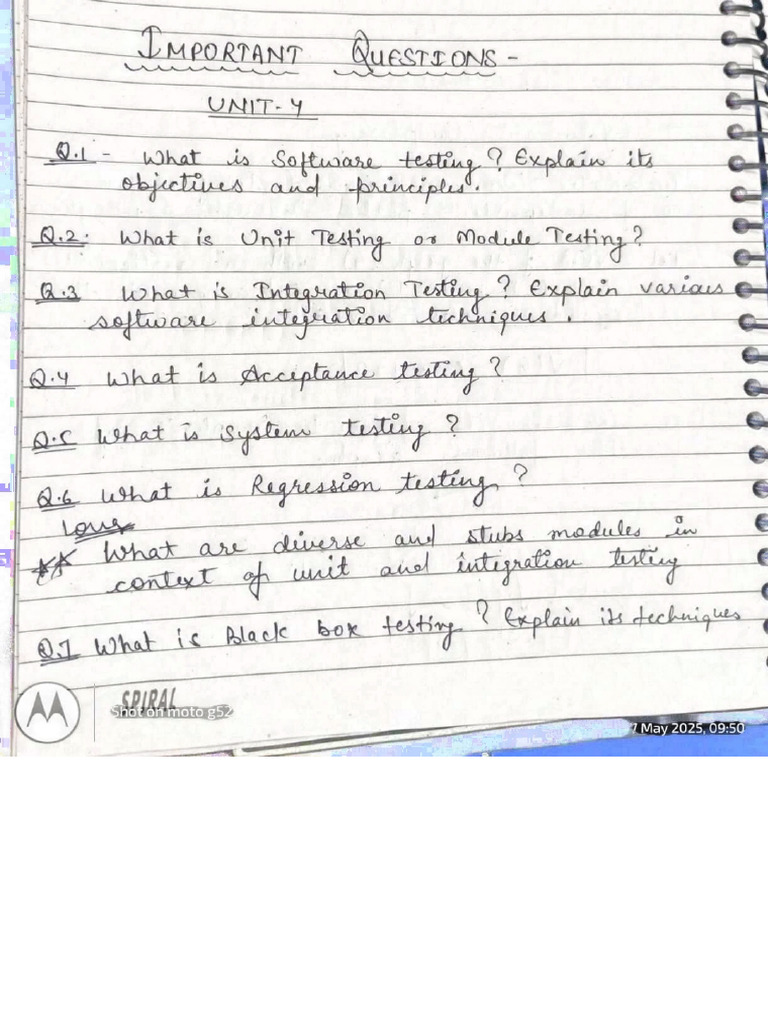 IMPORTANT QUESTIONS -
UNIT-4
Q.1 - What is Software testing? Explain its
objectives and principles.
Q.2. What is Unit Testing or Module Testing?
Q.3 What is Integration Testing? Explain various
software integration techniques.
Q.4 What is Acceptance testing?
Q.5 What is System testing?
Q.6 What is Regression testing?
Long
** What are diverse and stubs modules in
context of unit and integration testing
Q.7 What is Black box testing? Explain its techniques
SPIRAL
Shot on moto g52
7 May 2025, 09:50